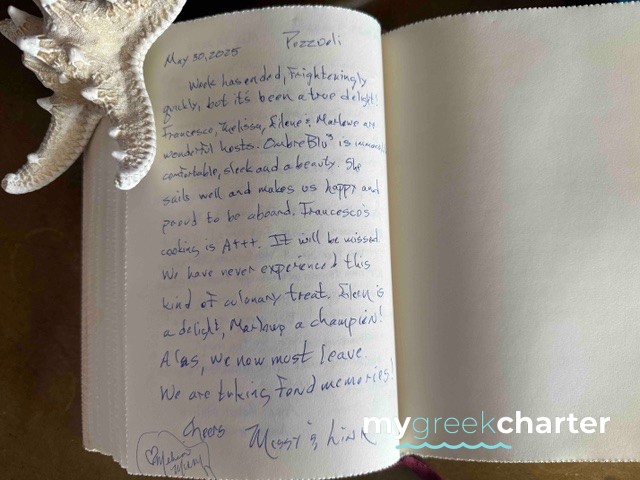 May 30, 2025 Pozzuoli
Week has ended, Frighteningly
quickly, but it's been a true delight!
Francesco, Melissa, Eilene & Marlowe are
wonderful hosts. OmbreBlu³ is
comfortable, sleek and a beauty. She
sails well and makes us happy and
proud to be aboard. Francesco's
cooking is A+++. It will be missed
We have never experienced this
kind of culonary treat. Eileen is
a delight, a champion!
Alas, we now most leave.
We are taking fond memories!
Cheers Missy &
mygreekcharter